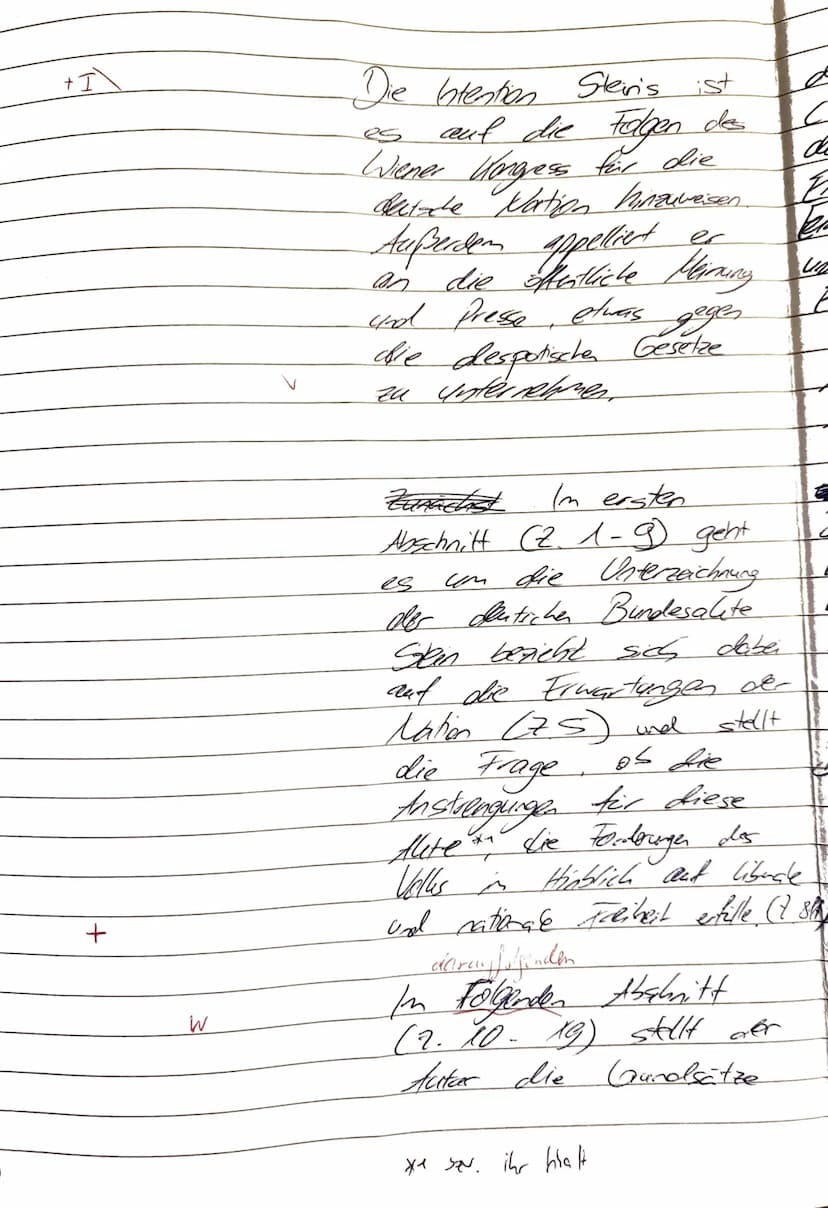 + I
Die Intention Stein's ist
es auf die Folgen des
Wiener Kongress für die
deutsche Nation hinzuweisen.
Außerdem appelliert er
an die öffentliche Meinung
und Presse, etwas gegen
die despotischen Gesetze
zu unternehmen.
Zunächst Im ersten
Abschnitt (Z. 1-9) geht
es um die Unterzeichnung
der deutschen Bundesakte
Stein bezieht sich dabei
auf die Erwartungen der
Nation (Z 5) und stellt
die Frage, ob die
Anstrengungen für diese
Akte *1, die Forderungen des
Volks in Hinblick auf liberale
und nationale Freiheit erfülle. (Z. 8
+
darauffolgenden
In Folgenden Abschnitt
W
(Z. 10 - 19) stellt der
Autor die Grundsätze
*1 bzw. ihr Inhalt